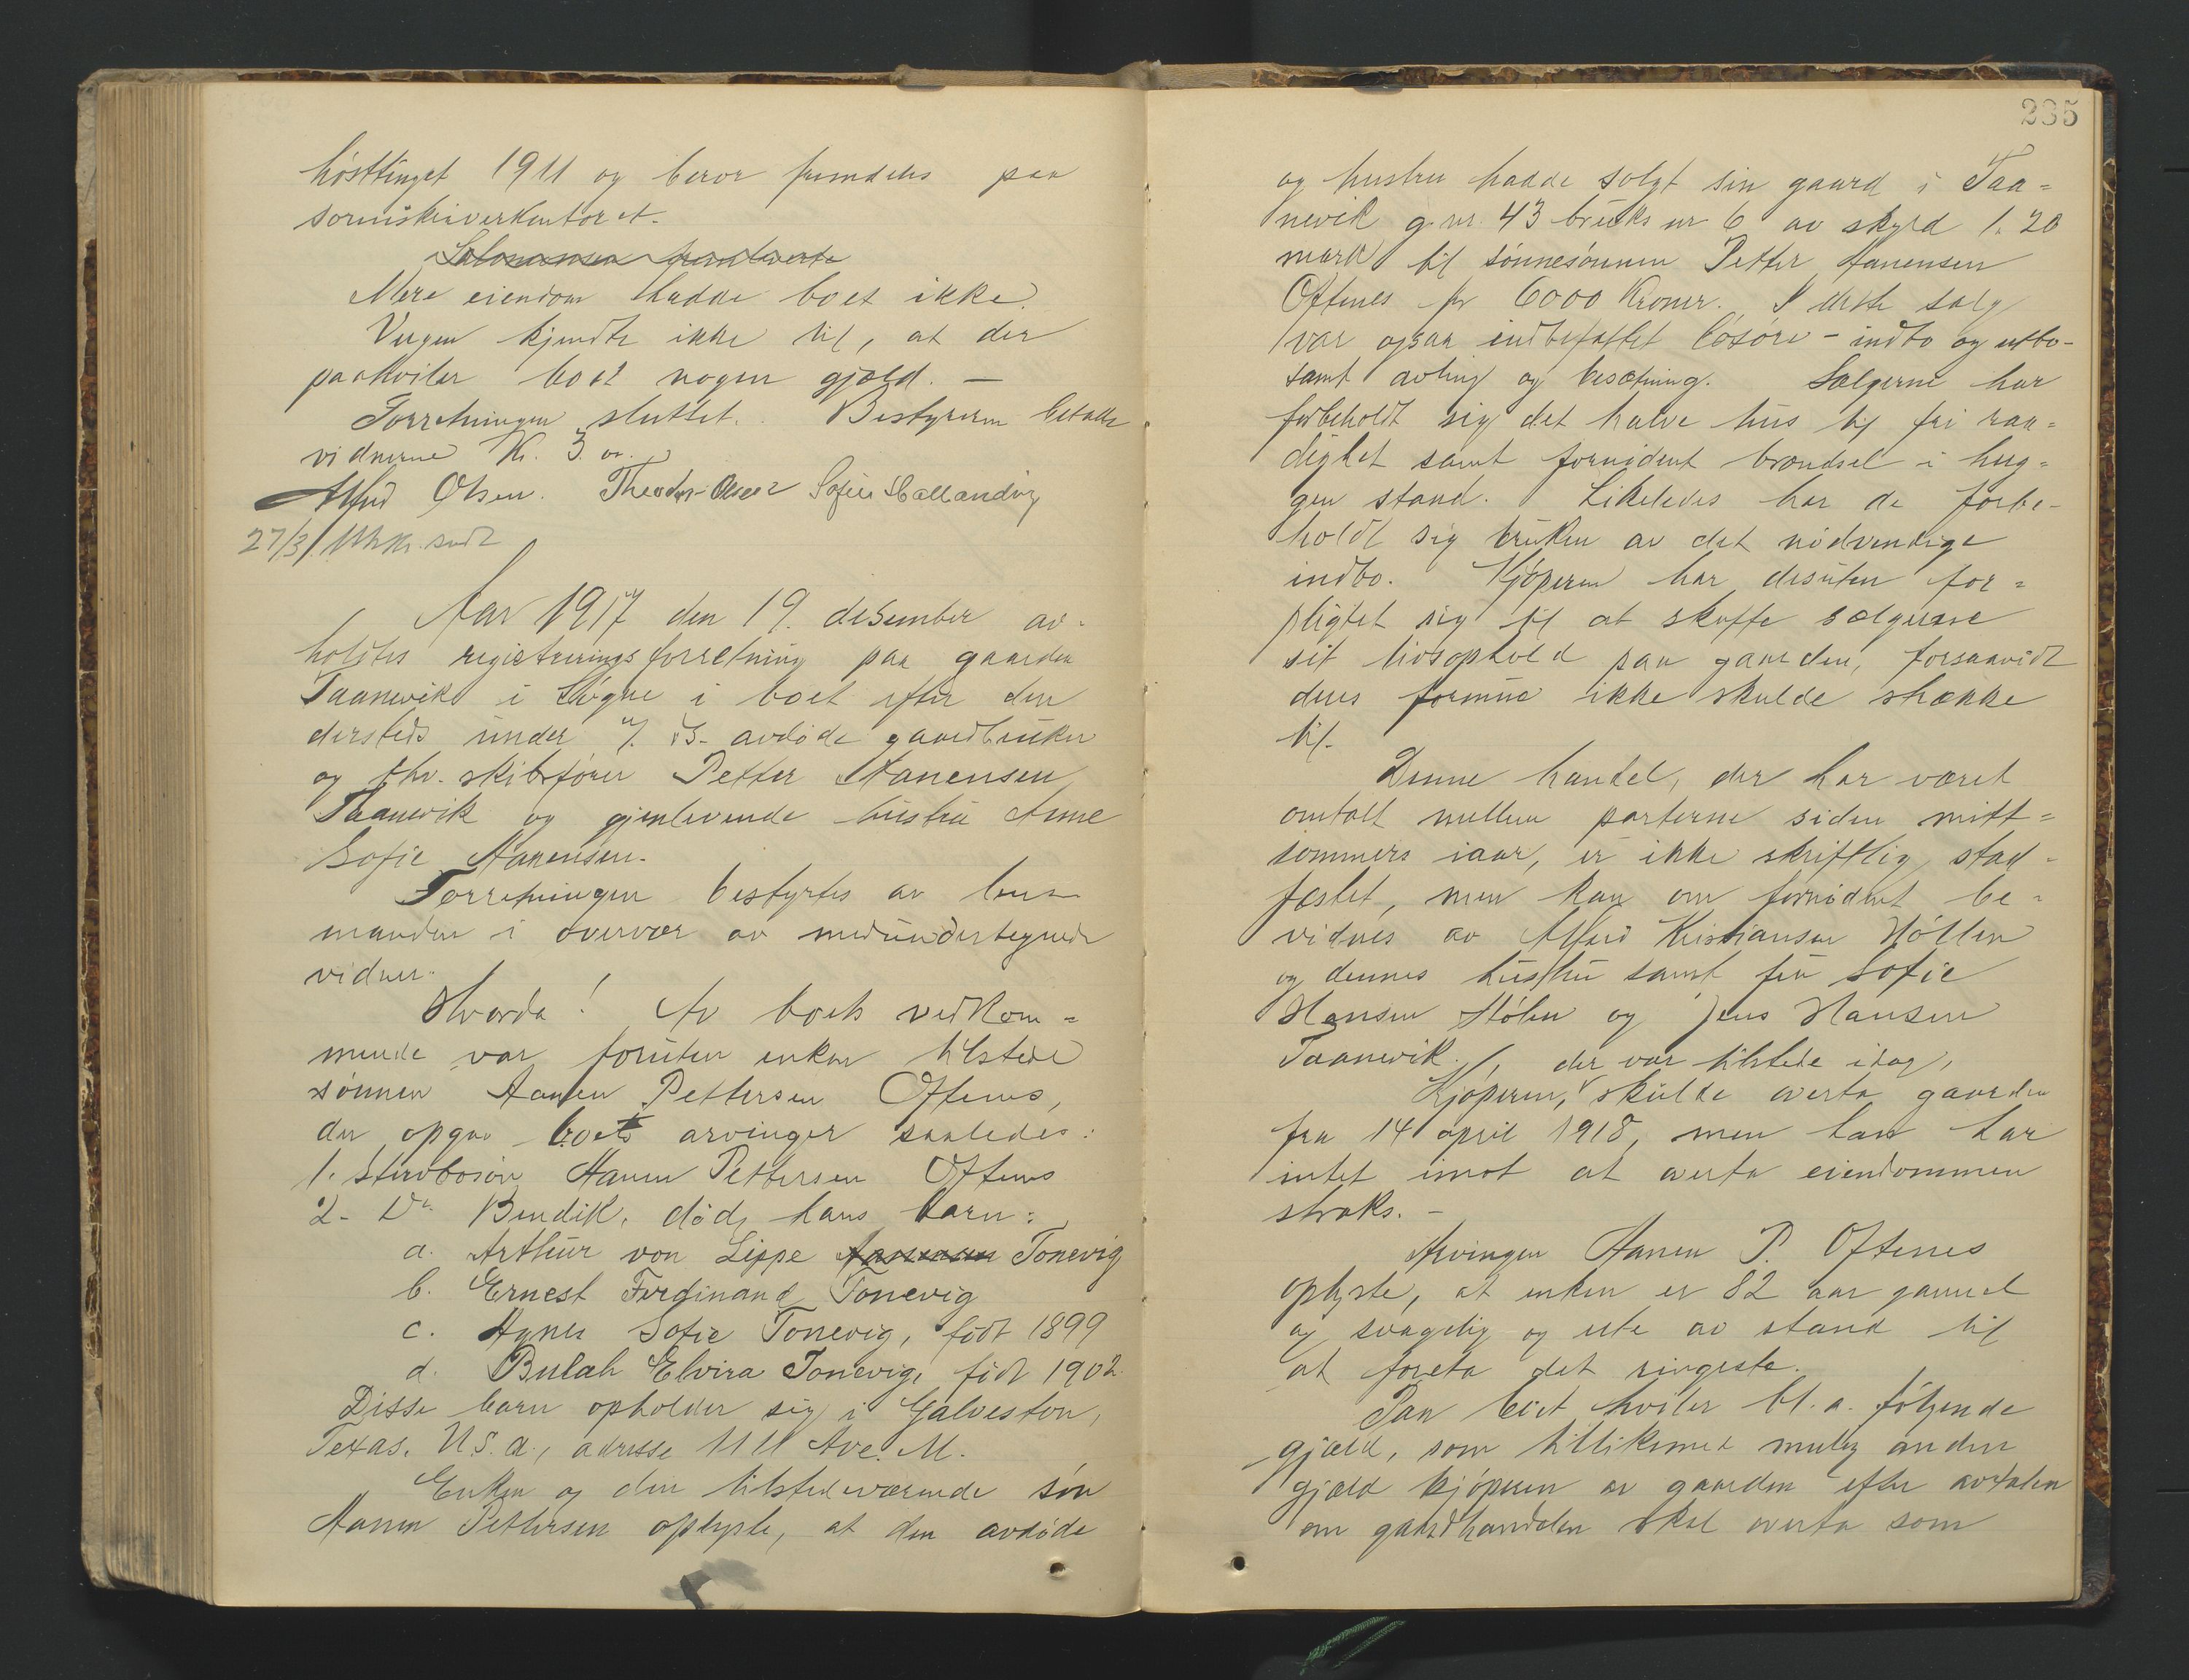 høsttinget 1911 og beror fremdeles paa
sorenskriverkontoret.
Mere eiendom hadde boet ikke.
Vergen kjendte ikke til, at der
paahviler boet nogen gjæld. —
Forretningen sluttet. Bestyreren betalte
vidnerne Kr. 3. oo.
Alfred Olsen. Theodor Olsen Sofus Hallandvig
27/3 utskr. sendt
Aar 1917 den 19. desember av-
holdtes registreringsforretning paa gaarden
Taanevik i Søgne i boet efter den
dersteds under avdøde gaardbruker
og fhv. skibsfører Petter Aanensen
Taanevik og gjenlevende hustru Anne
Sofie Aanensen.
Forretningen bestyrtes av lens-
manden i overvær av medundertegnede
vidner.
Hvorda! Av boets vedkom=
mende var foruten enken tilstede
sønnen Aanen Pettersen Oftenes,
der opgav boets arvinger saaledes:
1. Stervbosøn Aanen Pettersen Oftenes
2. Do Bendik, død, hans barn:
a. Arthur von Lippe Tonevig
b. Ernest Ferdinand Tonevig
c. Agnes Sofie Tonevig, født 1899
d. Bulah Elvira Tonevig, født 1902.
Disse barn opholder sig i Galveston,
Texas. U.S.a., adresse 1111 Ave. M.
Enken og den tilstedeværende søn
Aanen Pettersen oplyste, at den avdøde
235
og hustru hadde solgt sin gaard i Taa=
nevik g. nr. 43 bruks nr 6 av skyld 1.20
mark til sønnesønnen Petter Aanensen
Oftenes for 6000 Kroner. I dette salg
var ogsaa indbefattet løsøre - indbo og utbo-
samt avling og besætning. Sælgerne har
forbeholdt sig det halve hus til fri raa=
dighet samt fornødent brændsel i hug=
gen stand. Likeledes har de forbe-
holdt sig bruken av det nødvendige
indbo. Kjøperen har desuten for=
pligtet sig til at skaffe sælgerne
sit livsophold paa gaarden, forsaavidt
deres formue ikke skulde strække
til.
Denne handel, der har været
omtalt mellem parterne siden mitt=
sommers iaar, er ikke skriftlig stad=
fæstet, men kan om fornødent be=
vidnes av Alfred Kristiansen Høllen
og dennes hustru samt fru Sofie
Hansen Høllen og Jens Hansen
Taanevik.
der var tilstede idag,
Kjøperen, skulde overta gaarden
fra 14 april 1918, men han har
intet imot at overta eiendommen
straks. -
Arvingen Aanen P. Oftenes
oplyste, at enken er 82 aar gammel
og svagelig og ute av stand til
at foreta det ringeste.
Paa boet hviler bl. a. følgende
gjæld, som tillikemed mulig anden
gjæld kjøperen av gaarden efter avtalen
om gaardhandelen skal overta som